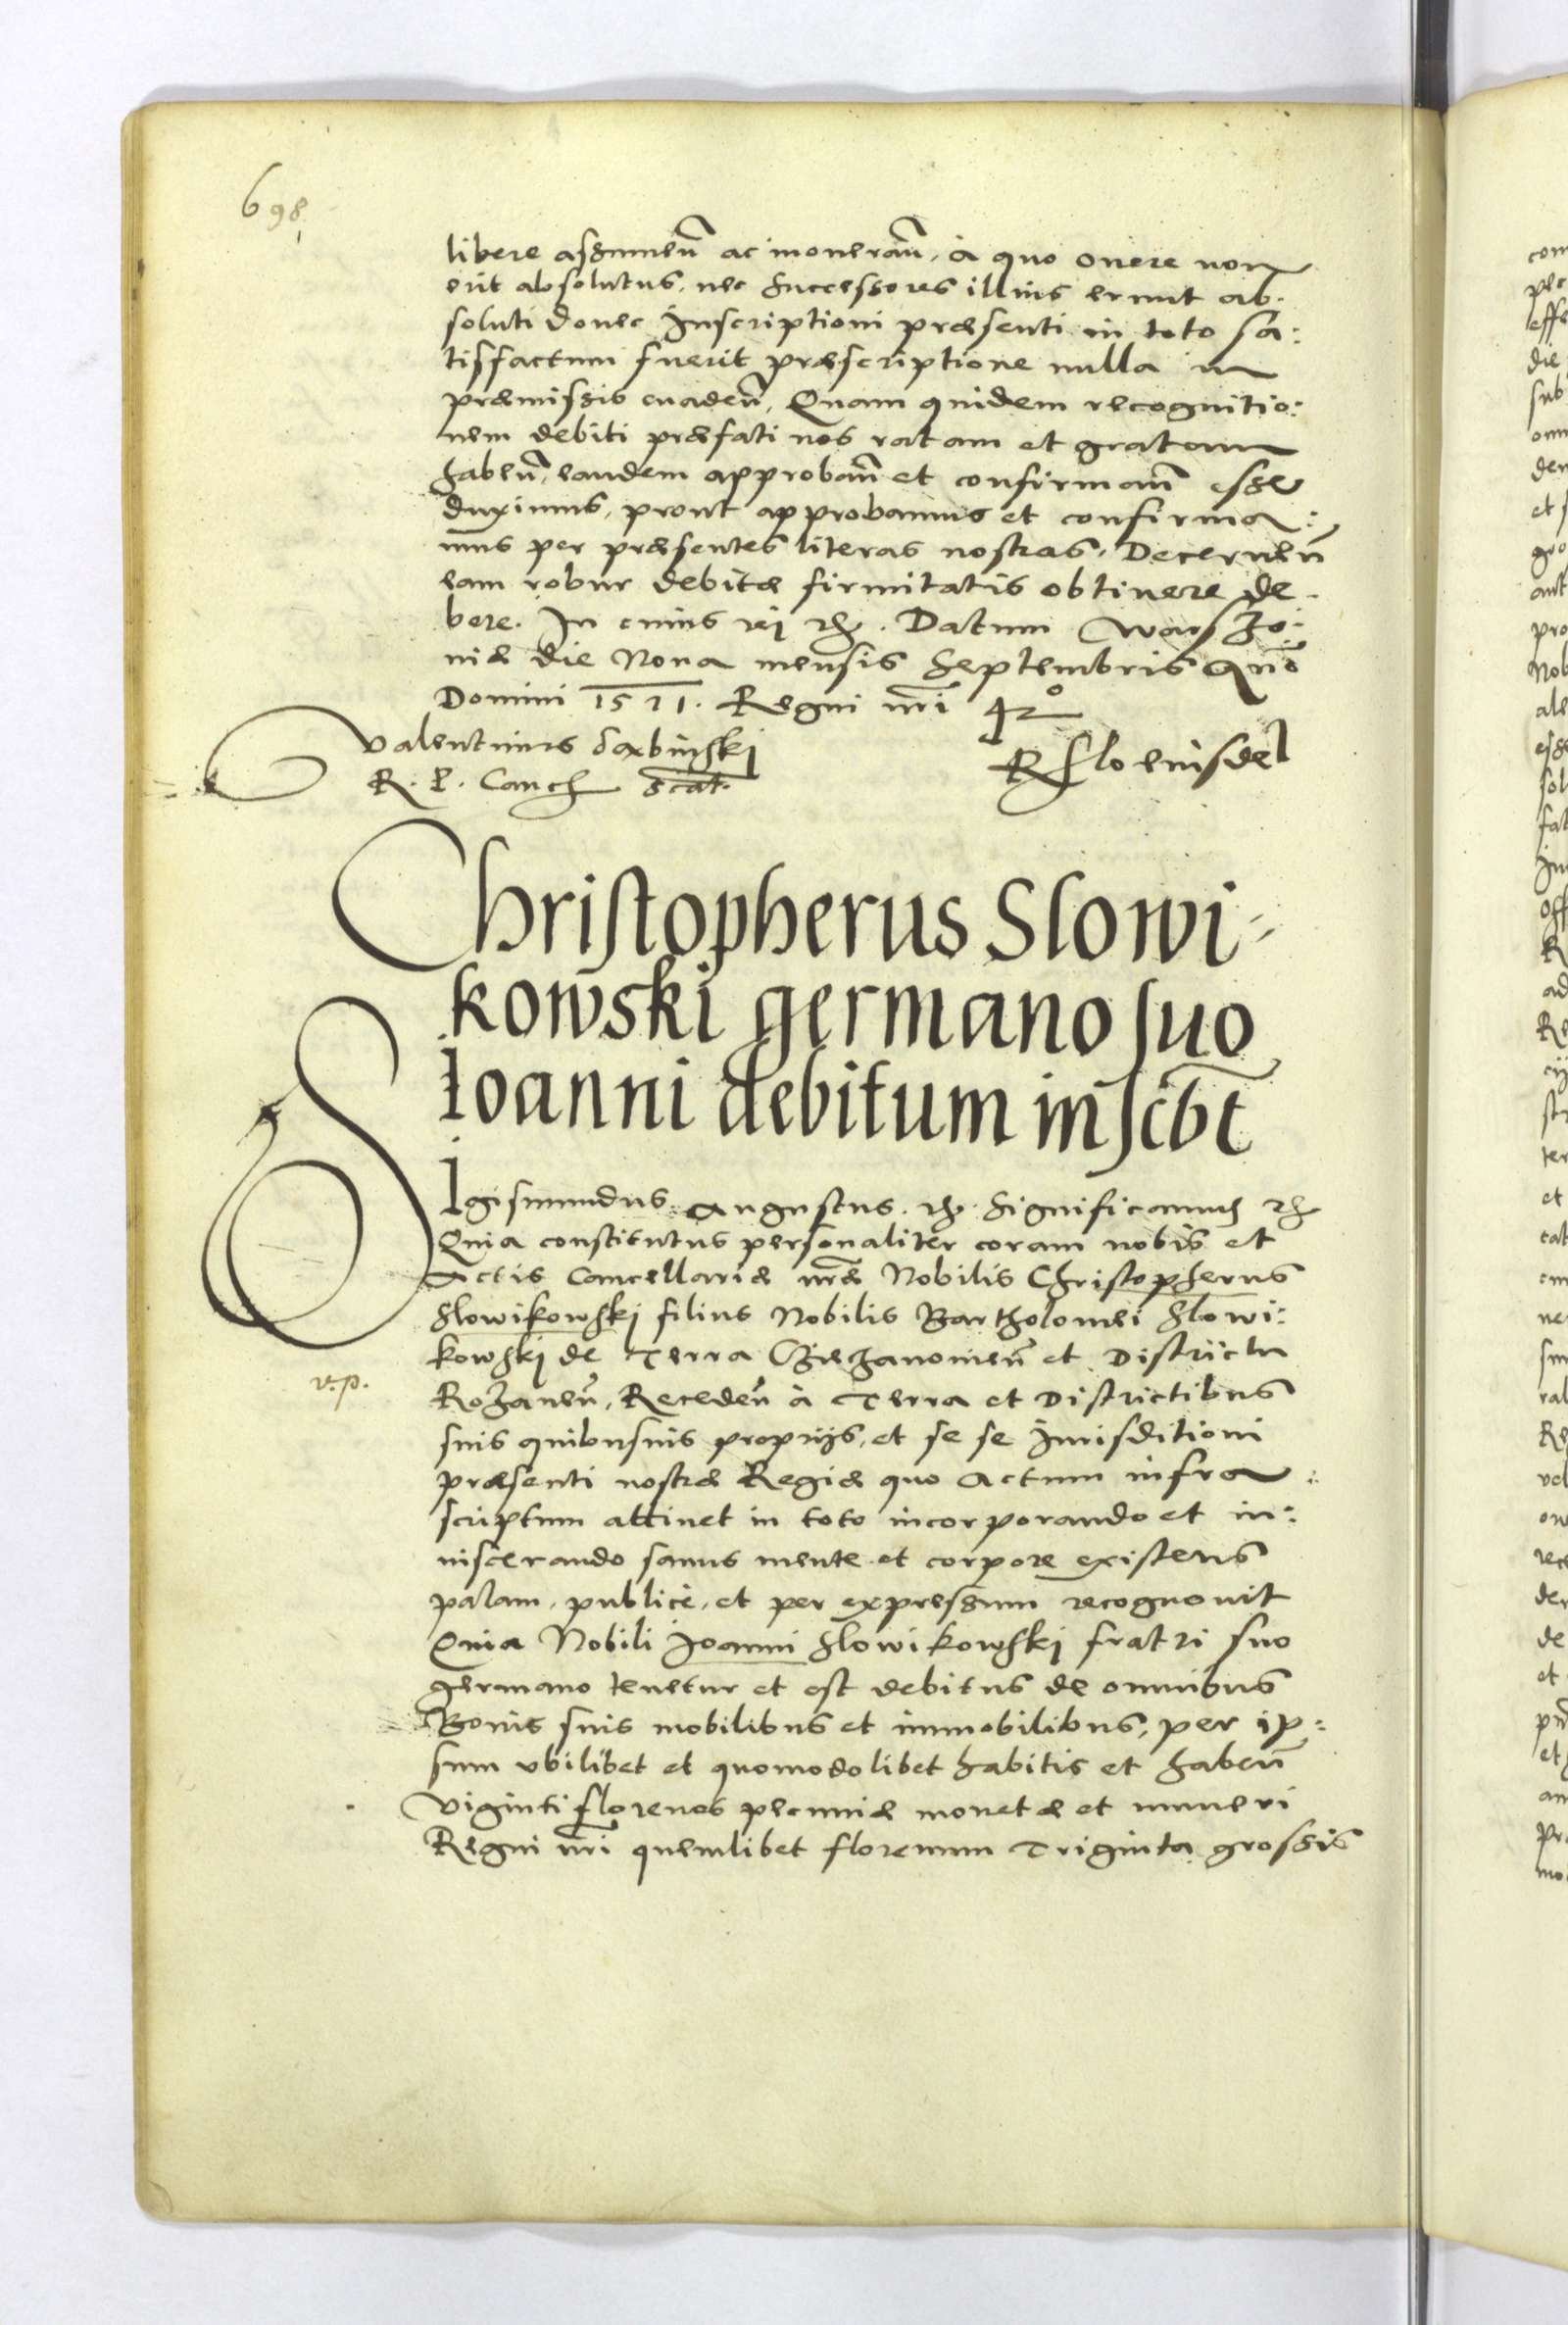 698
libere assumeñ ac inonerañ, à quo onere non
erit absolutus, nec Successores illius erunt ab.
soluti donec Inscriptioni præsenti in toto sa:
tisfactum fuerit præscriptione nulla in
præmissis euadeñ, Quam quidem recognitio:
nem debiti præfati nos ratam et gratam
habeñ, eandem approbañ et confirmañ esse
duximus, prout approbamus et confirma:
mus per præsentes literas nostras, Decerneñ
eam robur debitæ firmitatis obtinere de.
bere. In cuius rei etc. Datum Warszo:
niæ die Nona mensis Septembris Anno
Domini 1571. Regni nri 42°
Valentinus Dabinskj
R. P. Canc scat.
Christopherus Slowi-
kowski germano suo
Ioanni debitum inscbt
Sigismundus Augustus. etc. Significamus etc
Quia constitutus personaliter coram nobis et
Actis Cancellariæ nræ Nobilis Christopherus
Slowikowskj filius Nobilis Bartholomei Slowi:
kowskj de Terra Ciechanouieñ et Districtu
v.p.
Rozaneñ, Recedeñ à Terra et Districtibus
suis quibusuis proprijs, et se se Iurisditioni
præsenti nostræ Regiæ quo Actum infra:
scriptum attinet in toto incorporando et in:
uiscerando sanus mente et corpore existens
palam, publicè, et per expressum recognouit
Quia Nobili Joanni Slowikowskj fratri suo
germano tenetur et est debitus de omnibus
Bonis suis mobilibus et immobilibus, per ip:
sum vbilibet et quomodolibet habitis et habeñ
Viginti florenos pecuniæ monetæ et numeri
Regni nri quemlibet florenum Triginta grossis